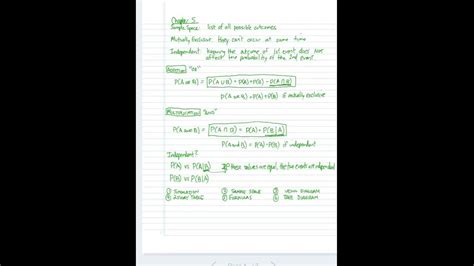 Chapter 5
Sample Space: list of all possible outcomes
Mutually Exclusive: they can't occur at same time
Independent: knowing the outcome of 1st event does not
affect the probability of the 2nd event.
Addition "OR"
P(A or B) = P(A ∪ B) = P(A) + P(B) - P(A ∩ B)
P(A or B) = P(A) + P(B) if mutually exclusive
Multiplication "AND"
P(A and B) = P(A ∩ B) = P(A) · P(B|A)
P(A and B) = P(A) · P(B) if independent
Independent?
P(A) vs P(A|B)
If these values are equal, the two events are independent
P(B) vs P(B|A)
① Simulation ③ Sample Space ⑤ Venn Diagram
② 2-way Table ④ Formulas ⑥ Tree Diagram